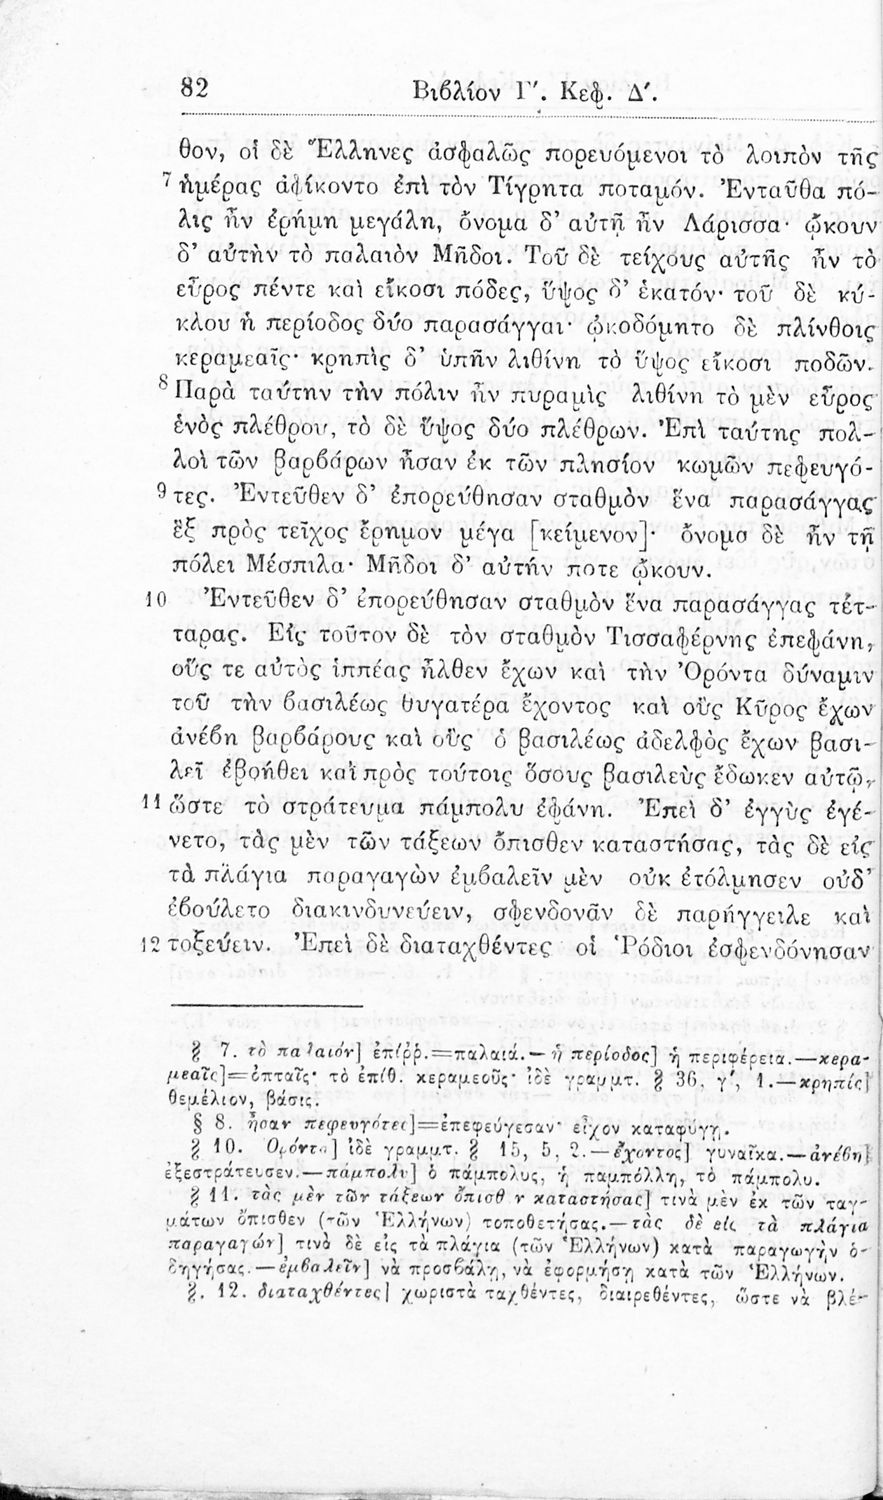 82 Βιβλίον Γ′. Κεφ. Δ′.
θον, οἱ δὲ Ἕλληνες ἀσφαλῶς πορευόμενοι τὸ λοιπὸν τῆς
7 ἡμέρας ἀφίκοντο ἐπὶ τὸν Τίγρητα ποταμόν. Ἐνταῦθα πό-
λις ἦν ἐρήμη μεγάλη, ὄνομα δ’ αὐτῇ ἦν Λάρισσα· ᾤκουν
δ’ αὐτὴν τὸ παλαιὸν Μῆδοι. Τοῦ δὲ τείχους αὐτῆς ἦν τὸ
εὖρος πέντε καὶ εἴκοσι πόδες, ὕψος δ’ ἑκατόν· τοῦ δὲ κύ-
κλου ἡ περίοδος δύο παρασάγγαι· ᾠκοδόμητο δὲ πλίνθοις
κεραμεαῖς· κρηπὶς δ’ ὑπῆν λιθίνη τὸ ὕψος εἴκοσι ποδῶν.
8 Παρὰ ταύτην τὴν πόλιν ἦν πυραμὶς λιθίνη τὸ μὲν εὖρος
ἑνὸς πλέθρου, τὸ δὲ ὕψος δύο πλέθρων. Ἐπὶ ταύτης πολ-
λοὶ τῶν βαρβάρων ἦσαν ἐκ τῶν πλησίον κωμῶν πεφευγό-
9 τες. Ἐντεῦθεν δ’ ἐπορεύθησαν σταθμὸν ἕνα παρασάγγας
ἓξ πρὸς τεῖχος ἔρημον μέγα [κείμενον]· ὄνομα δὲ ἦν τῇ
πόλει Μέσπιλα· Μῆδοι δ’ αὐτήν ποτε ᾤκουν.
10 Ἐντεῦθεν δ’ ἐπορεύθησαν σταθμὸν ἕνα παρασάγγας τέτ-
ταρας. Εἰς τοῦτον δὲ τὸν σταθμὸν Τισσαφέρνης ἐπεφάνη,
οὕς τε αὐτὸς ἱππέας ἦλθεν ἔχων καὶ τὴν Ὀρόντα δύναμιν
τοῦ τὴν βασιλέως θυγατέρα ἔχοντος καὶ οὓς Κῦρος ἔχων
ἀνέβη βαρβάρους καὶ οὓς ὁ βασιλέως ἀδελφὸς ἔχων βασι-
λεῖ ἐβοήθει καὶ πρὸς τούτοις ὅσους βασιλεὺς ἔδωκεν αὐτῷ,
11 ὥστε τὸ στράτευμα πάμπολυ ἐφάνη. Ἐπεὶ δ’ ἐγγὺς ἐγέ-
νετο, τὰς μὲν τῶν τάξεων ὄπισθεν καταστήσας, τὰς δὲ εἰς
τὰ πλάγια παραγαγὼν ἐμβαλεῖν μὲν οὐκ ἐτόλμησεν οὐδ’
ἐβούλετο διακινδυνεύειν, σφενδονᾶν δὲ παρήγγειλε καὶ
12 τοξεύειν. Ἐπεὶ δὲ διαταχθέντες οἱ Ῥόδιοι ἐσφενδόνησαν
§ 7. τὸ παλαιόν] ἐπίρρ.=παλαιά.—ἡ περίοδος] ἡ περιφέρεια.—κερα-
μεαῖς]=ὀπταῖς· τὸ ἐπίθ. κεραμεοῦς· ἰδὲ γραμμτ. § 36, γ′, 1.—κρηπίς]
θεμέλιον, βάσις.
§ 8. ἦσαν πεφευγότες]=ἐπεφεύγεσαν· εἶχον καταφύγῃ.
§ 10. Ὀρόντα] ἰδὲ γραμμτ. § 15, 5, 2.—ἔχοντος] γυναῖκα.—ἀνέβη]
ἐξεστράτευσεν.—πάμπολυ] ὁ πάμπολυς, ἡ παμπόλλη, τὸ πάμπολυ.
§ 11. τὰς μὲν τῶν τάξεων ὄπισθ ν καταστήσας] τινὰ μὲν ἐκ τῶν ταγ-
μάτων ὄπισθεν (τῶν Ἑλλήνων) τοποθετήσας.—τὰς δὲ εἰς τὰ πλάγια
παραγαγών] τινὰ δὲ εἰς τὰ πλάγια (τῶν Ἑλλήνων) κατὰ παραγωγὴν ὁ-
δηγήσας.—ἐμβαλεῖν] νὰ προσβάλῃ, νὰ ἐφορμήσῃ κατὰ τῶν Ἑλλήνων.
§. 12. διαταχθέντες] χωριστὰ ταχθέντες, διαιρεθέντες, ὥστε νὰ βλέ-